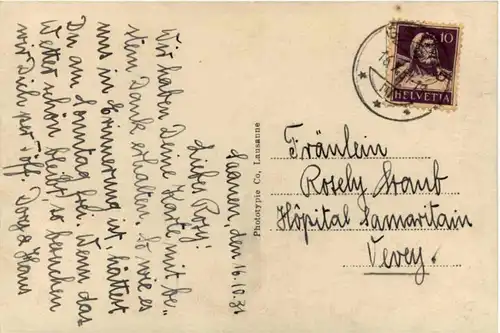 Saanen, den 16.10.31
Liebe Rosy!
Wir haben Deine Karte mit be-
stem Dank erhalten. So wie es
uns in Erinnerung ist, hättest
Du am Sonntag frei. Wenn das
Wetter schön bleibt, so besuchen
wir Dich per Töff. Dory & Hans
Phototypie Co, Lausanne
10
HELVETIA
Fräulein
Rosely Straub
Hôpital Samaritain
Vevey.